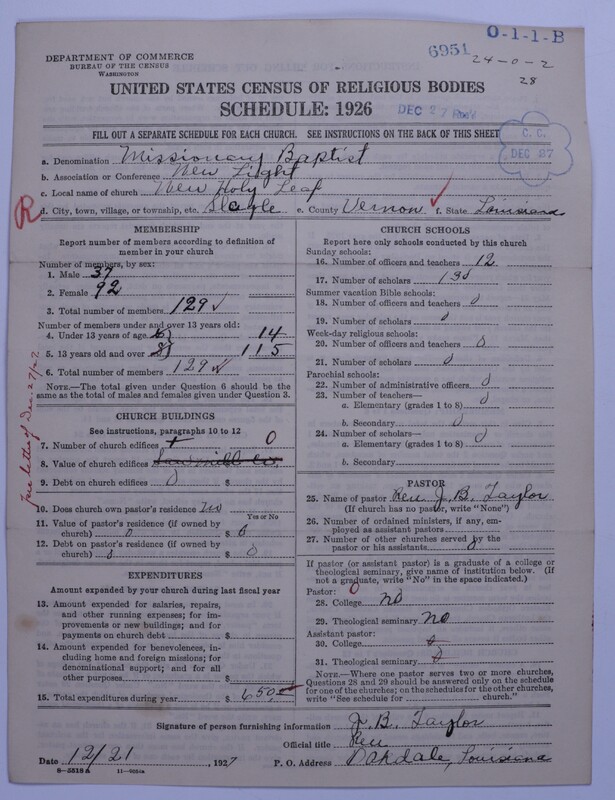 O-1-1-B
6951
24-0-2
28
DEPARTMENT OF COMMERCE
BUREAU OF THE CENSUS
WASHINGTON
UNITED STATES CENSUS OF RELIGIOUS BODIES
SCHEDULE: 1926
DEC 27 Rec'd
FILL OUT A SEPARATE SCHEDULE FOR EACH CHURCH. SEE INSTRUCTIONS ON THE BACK OF THIS SHEET
C. C.
DEC 27
a. Denomination Missionary Baptist
b. Association or Conference New Light
c. Local name of church New Holy Leaf
R d. City, town, village, or township, etc. Slagle e. County Vernon f. State Louisiana
MEMBERSHIP
Report number of members according to definition of member in your church
Number of members, by sex:
1. Male 37
2. Female 92
3. Total number of members 129 ✓
Number of members under and over 13 years old:
4. Under 13 years of age 14
5. 13 years old and over 115
6. Total number of members 129 ✓
NOTE.—The total given under Question 6 should be the
same as the total of males and females given under Question 3.
CHURCH BUILDINGS
See instructions, paragraphs 10 to 12
7. Number of church edifices 0
8. Value of church edifices Sawmill Co
9. Debt on church edifices 0
10. Does church own pastor's residence no
Yes or No
11. Value of pastor's residence (if owned by
church) 0 $ 0
12. Debt on pastor's residence (if owned by
church) 0 $ 0
See letter of Dec. 27/27
EXPENDITURES
Amount expended by your church during last fiscal year
13. Amount expended for salaries, repairs,
and other running expenses; for im-
provements or new buildings; and for
payments on church debt $
14. Amount expended for benevolences, in-
cluding home and foreign missions; for
denominational support; and for all
other purposes $
15. Total expenditures during year $ 650.
CHURCH SCHOOLS
Report here only schools conducted by this church
Sunday schools:
16. Number of officers and teachers 12
17. Number of scholars
Summer vacation Bible schools:
18. Number of officers and teachers 0
19. Number of scholars 0
Week-day religious schools:
20. Number of officers and teachers 0
21. Number of scholars 0
Parochial schools:
22. Number of administrative officers 0
23. Number of teachers—
a. Elementary (grades 1 to 8) 0
b. Secondary 0
24. Number of scholars—
a. Elementary (grades 1 to 8) 0
b. Secondary
PASTOR
25. Name of pastor Rev J. B. Taylor
(If church has no pastor, write "None")
26. Number of ordained ministers, if any, em-
ployed as assistant pastors
27. Number of other churches served by the
pastor or his assistants 0
If pastor (or assistant pastor) is a graduate of a college or
theological seminary, give name of institution below. (If
not a graduate, write "No" in the space indicated.)
Pastor: 0
28. College no
29. Theological seminary no
Assistant pastor:
30. College 0
31. Theological seminary 0
NOTE.—Where one pastor serves two or more churches,
Questions 28 and 29 should be answered only on the schedule
for one of the churches; on the schedules for the other churches,
write "See schedule for church."
Signature of person furnishing information J. B. Taylor
Official title Rev
Date 12/21, 1927 P. O. Address Oakdale, Louisiana
8—5518 A